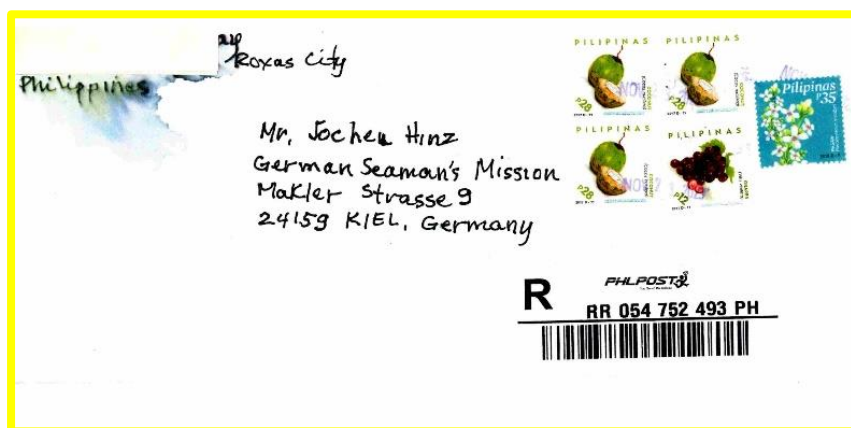 Roxas City
Philippines
Mr. Jochen Hinz
German Seaman's Mission
Makler Strasse 9
24159 KIEL, Germany
PILIPINAS
PILIPINAS
₱28
₱28
PILIPINAS
PILIPINAS
₱28
₱12
Pilipinas
₱35
R
PHLPOST
RR 054 752 493 PH